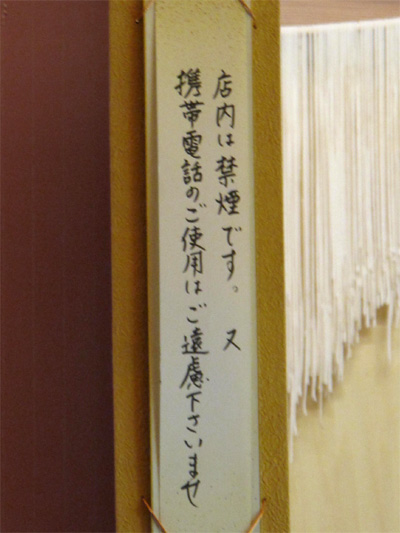 店内は禁煙です。 又
携帯電話のご使用はご遠慮下さいませ